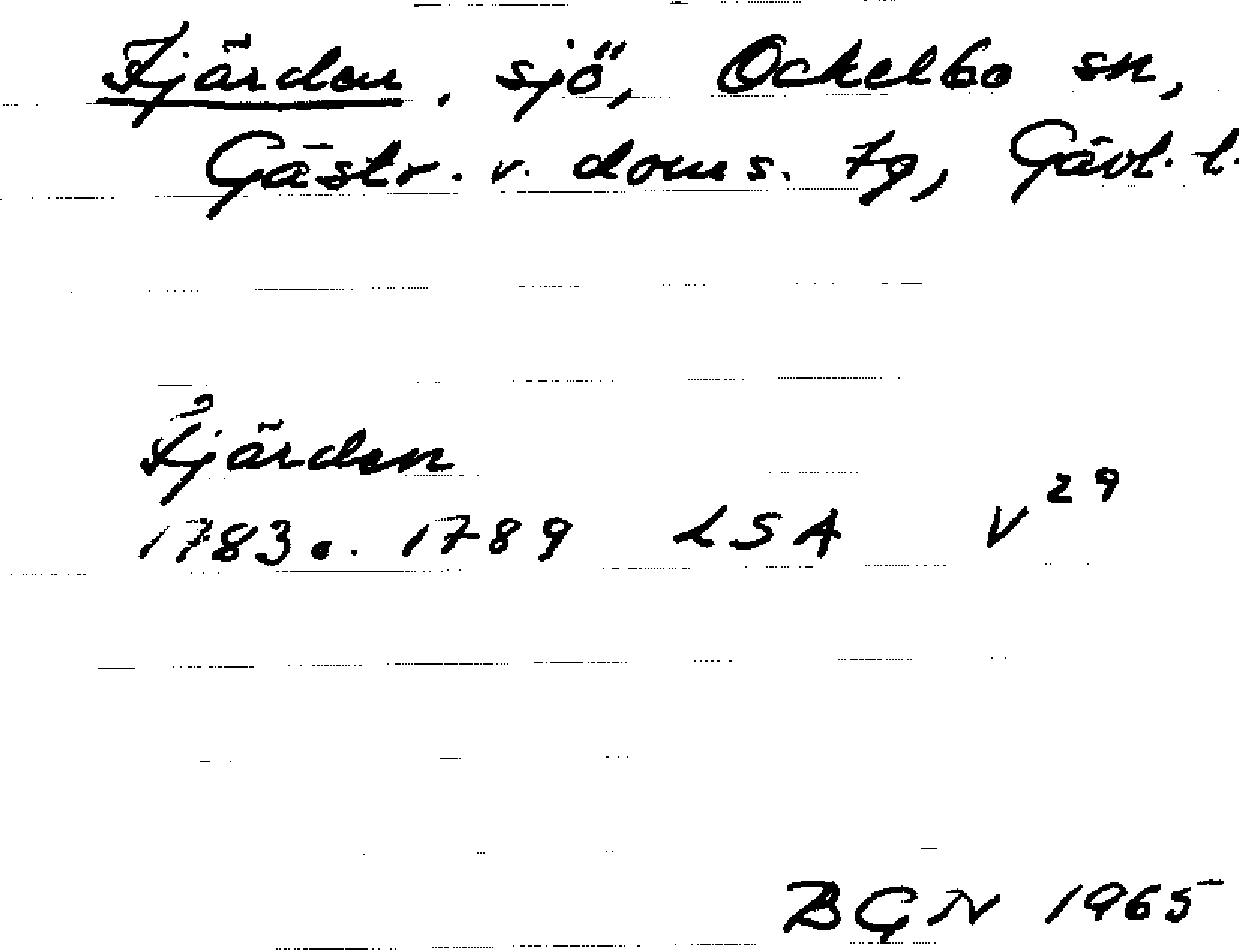 Fjärden, sjö, Ockelbo sn,
Gästr. v. doms. tg, Gävl. l.
Fjärden
1783 o. 1789 LSA V 29
BGN 1965